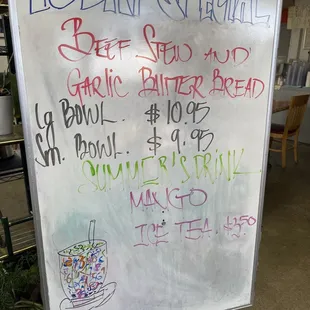 SPECIAL
BEEF STEW AND
GARLIC BUTTER BREAD
Lg BOWL. $10.95
Sm. BOWL. $9.95
SUMMER'S DRINK
MANGO
ICE TEA. $3.50